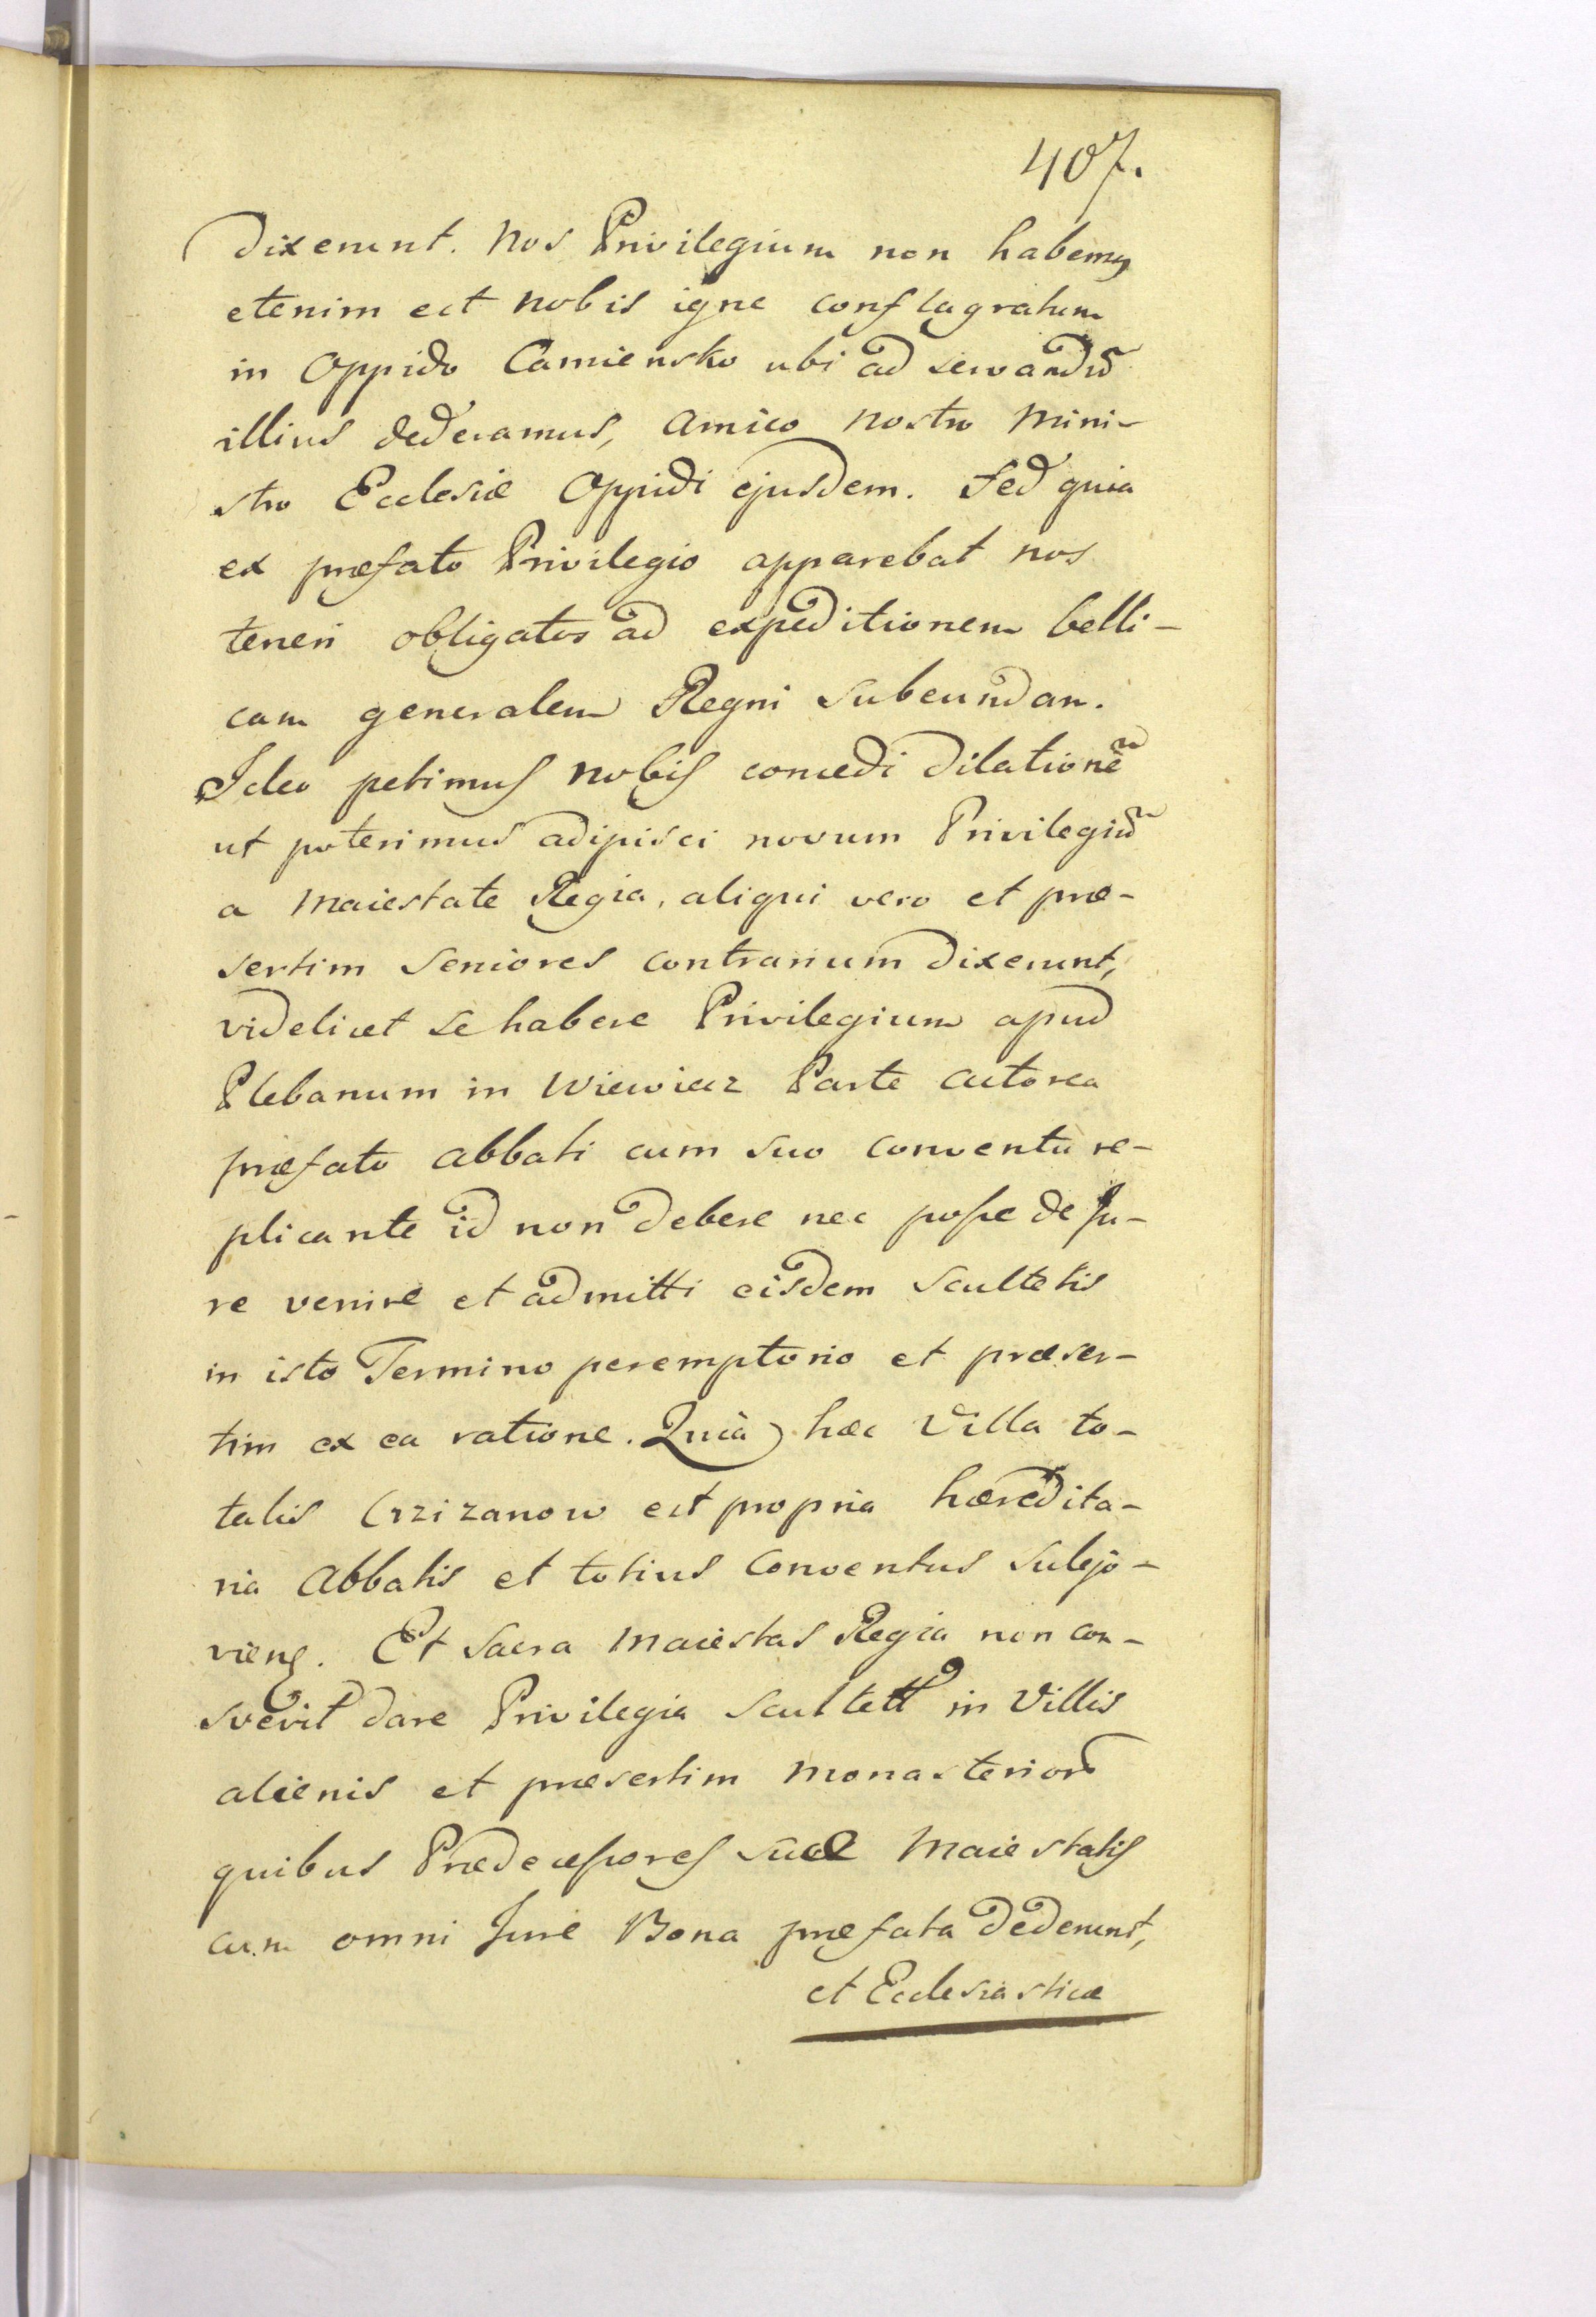 407.
dixerunt. Nos Privilegium non habemus
etenim est nobis igne conflagratum
in Oppido Camiensko ubi ad servandū
illius dederamus, Amico nostro Mini-
stro Ecclesiæ Oppidi ejusdem. Sed quia
ex præfato Privilegio apparebat nos
teneri obligatos ad expeditionem belli-
cam generalem Regni subeundam.
Ideo petimus nobis concedi dilationē
ut poterimus adipisci novum Privilegiū
a Maiestate Regia, aliqui vero et præ-
sertim Seniores contrarium dixerunt,
videlicet se habere Privilegium apud
Plebanum in Wiewiecz Parte actorea
præfato Abbati cum suo conventu re-
plicante id non debere nec posse de Ju-
re venire et admitti eisdem Scultetis
in isto Termino peremptorio et præser-
tim ex ea ratione. Quià hæc Villa to-
talis Crzizanow est propria hæredita-
ria Abbatis et totius Conventus Sulejo-
viens. Et Sacra Maiestas Regia non con-
svevit dare Privilegia Scultett in Villis
alienis et præsertim Monasterior
quibus Prædecessores suæ Maiestatis
cum omni Jure Bona præfata dederunt,
et Ecclesiasticæ